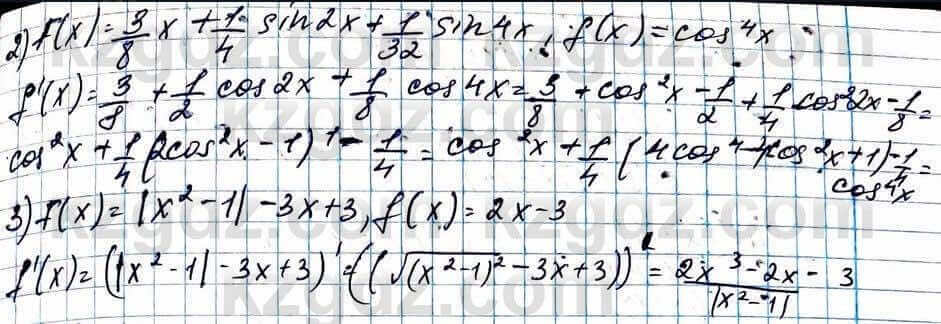 2) F(x) = 3/8 x + 1/4 sin 2x + 1/32 sin 4x, f(x) = cos⁴x
f'(x) = 3/8 + 1/2 cos 2x + 1/8 cos 4x = 3/8 + cos²x - 1/2 + 1/4 cos²2x - 1/8 =
cos²x + 1/4 (2cos²x - 1)¹ - 1/4 = cos²x + 1/4 (4cos⁴ - 4cos²x + 1) - 1/4 =
cos⁴x
3) F(x) = |x² - 1| - 3x + 3, f(x) = 2x - 3
f'(x) = (|x² - 1| - 3x + 3)' = ((√(x² - 1)² - 3x + 3))' = 2x³ - 2x / |x² - 1| - 3
kzgdz.com